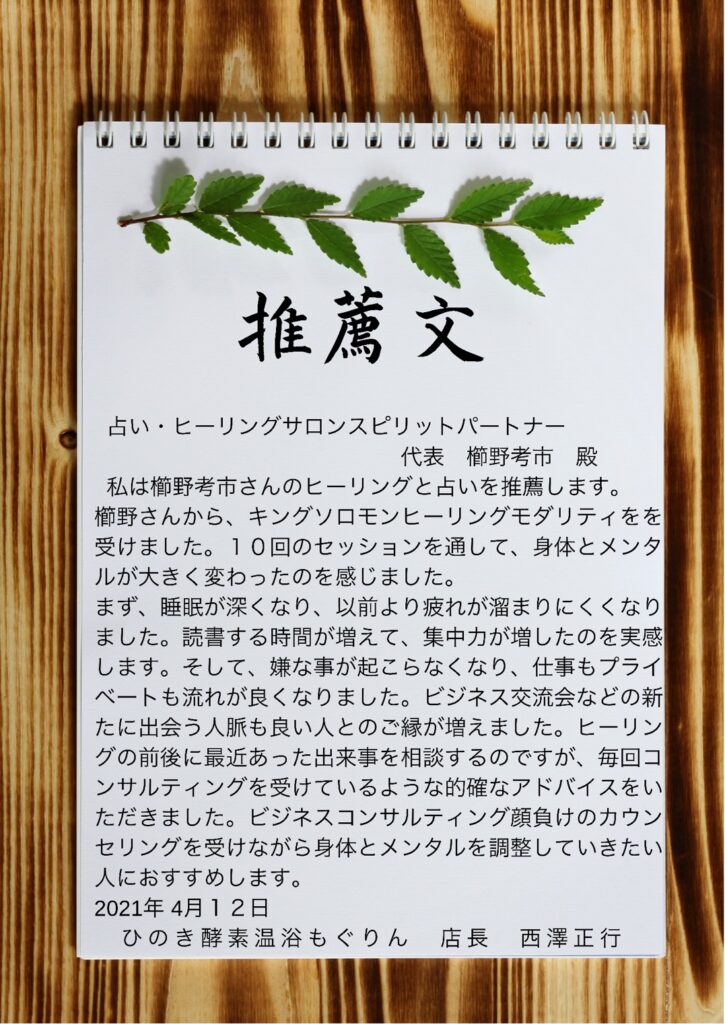 推薦文
占い・ヒーリングサロンスピリットパートナー
代表　櫛野考市　殿
私は櫛野考市さんのヒーリングと占いを推薦します。
櫛野さんから、キングソロモンヒーリングモダリティをを
受けました。１０回のセッションを通して、身体とメンタ
ルが大きく変わったのを感じました。
まず、睡眠が深くなり、以前より疲れが溜まりにくくなり
ました。読書する時間が増えて、集中力が増したのを実感
します。そして、嫌な事が起こらなくなり、仕事もプライ
ベートも流れが良くなりました。ビジネス交流会などの新
たに出会う人脈も良い人とのご縁が増えました。ヒーリン
グの前後に最近あった出来事を相談するのですが、毎回コ
ンサルティングを受けているような的確なアドバイスをい
ただきました。ビジネスコンサルティング顔負けのカウン
セリングを受けながら身体とメンタルを調整していきたい
人におすすめします。
2021年 4月１２日
ひのき酵素温浴もぐりん　店長　西澤正行